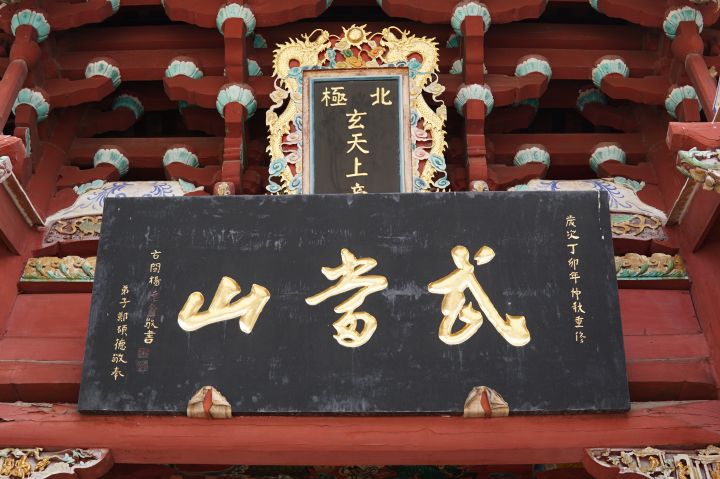 北極
玄天上帝
歲次丁卯年仲秋重修
武當山
古閩楊 敬書
弟子鄭碩德敬奉